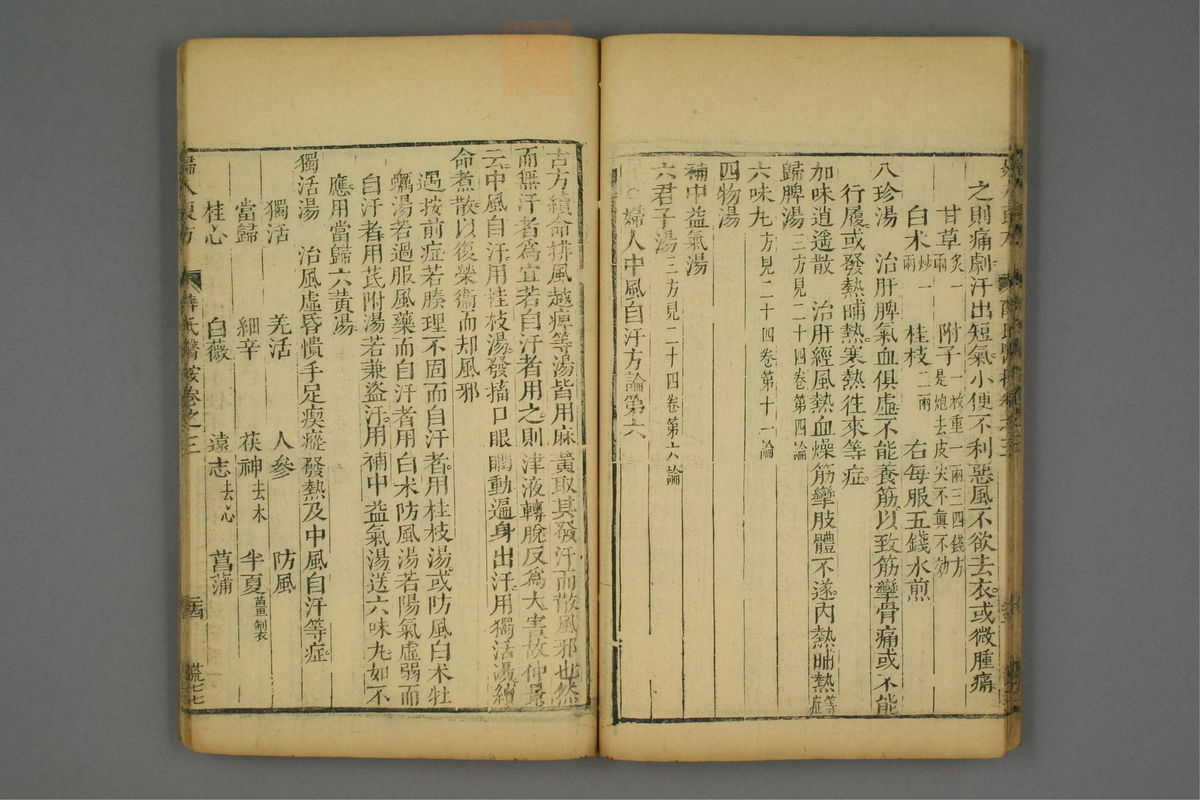 之則痛劇汗出短氣小便不利惡風不欲去衣或微腫痛
甘草炙一兩　附子一枚重一兩三四錢方是炮去皮尖不真不効
白术炒一兩　桂枝二兩　右每服五錢水煎
八珍湯　治肝脾氣血俱虛不能養筋以致筋攣骨痛或不能
行履或發熱晡熱寒熱往來等症
加味逍遥散　治肝經風熱血燥筋攣肢體不遂內熱晡熱等症
歸脾湯三方見二十四卷第四論
六味丸方見二十四卷第十一論
四物湯
補中益氣湯
六君子湯三方見二十四卷第六論
○婦人中風自汗方論第六
古方續命排風越痺等湯皆用麻黃取其發汗而散風邪也然
而無汗者爲宜若自汗者用之則津液轉脫反爲大害故仲景
云中風自汗用桂枝湯發搐口眼瞤動遍身出汗用獨活湯續
命煮散以復榮衞而却風邪
遇按前症若腠理不固而自汗者用桂枝湯或防風白术牡
蠣湯若過服風藥而自汗者用白术防風湯若陽氣虛弱而
自汗者用芪附湯若兼盗汗用補中益氣湯送六味丸如不
應用當歸六黃湯
獨活湯　治風虛昏憒手足瘈瘲發熱及中風自汗等症
獨活　羌活　人參　防風
當歸　細辛　茯神去木　半夏薑製
桂心　白薇　遠志去心　菖蒲
婦人良方　薛氏醫按卷之三